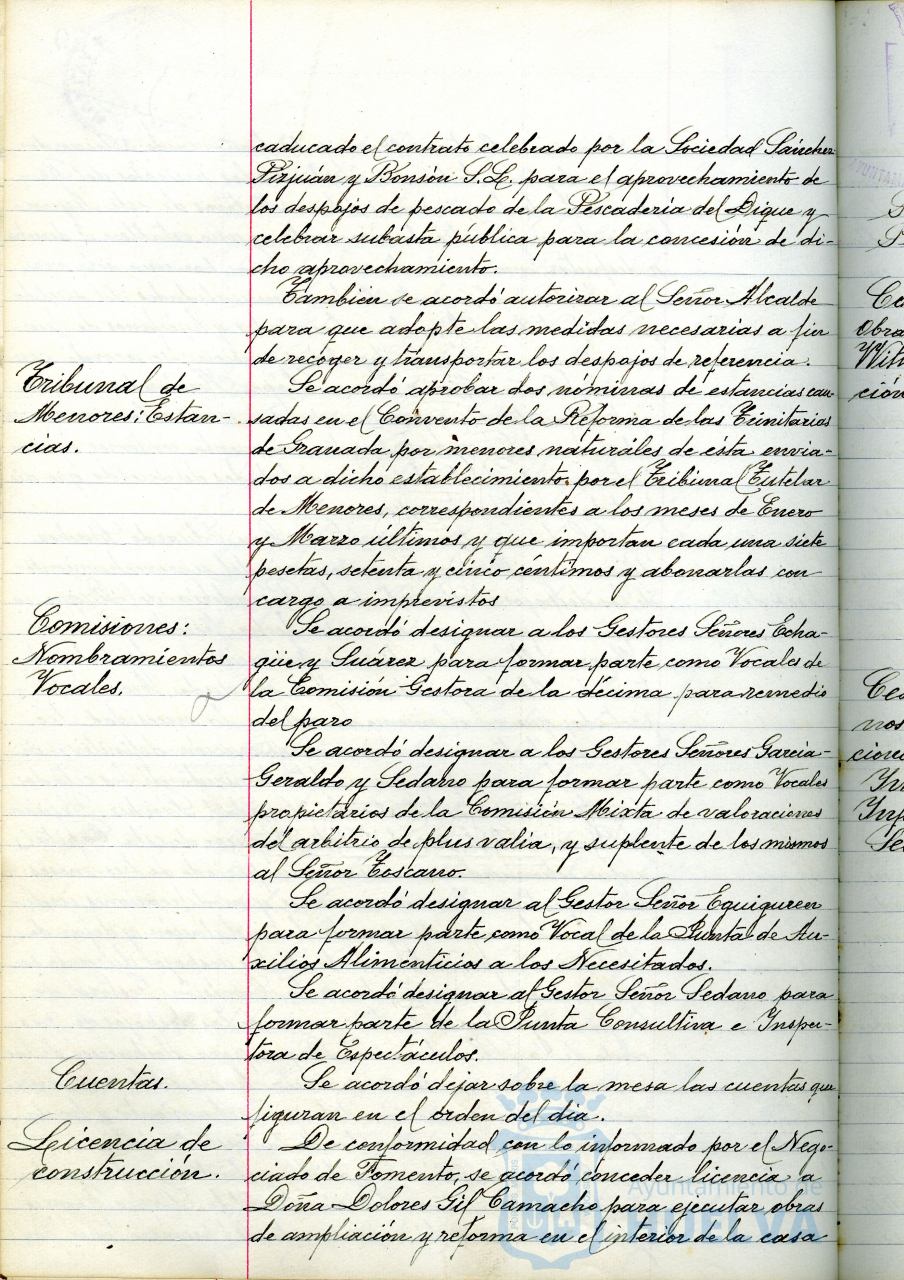 caducado el contrato celebrado por la Sociedad Sánchez
Pizjuán y Bonsón S.L. para el aprovechamiento de
los despojos de pescado de la Pescadería del Dique y
celebrar subasta pública para la concesión de di-
cho aprovechamiento.
También se acordó autorizar al Señor Alcalde
para que adopte las medidas necesarias a fin
de recoger y transportar los despojos de referencia.
Tribunal de
Menores: Estan-
cias.
Se acordó aprobar dos nóminas de estancias cau-
sadas en el Convento de la Reforma de las Trinitarias
de Granada, por menores naturales de ésta envia-
dos a dicho establecimiento por el Tribunal Tutelar
de Menores, correspondientes a los meses de Enero
y Marzo últimos y que importan cada una siete
pesetas, setenta y cinco céntimos y abonarlas con
cargo a imprevistos
Comisiones:
Nombramientos
Vocales.
Se acordó designar a los Gestores Señores Echa-
güe y Suárez para formar parte como Vocales de
la Comisión Gestora de la décima para remedio
del paro
Se acordó designar a los Gestores Señores García-
Geraldo y Sedano para formar parte como Vocales
propietarios de la Comisión Mixta de valoraciones
del arbitrio de plus valía, y suplente de los mismos
al Señor Toscano.
Se acordó designar al Gestor Señor Eguiguren
para formar parte como Vocal de la Junta de Au-
xilios Alimenticios a los Necesitados.
Se acordó designar al Gestor Señor Sedano para
formar parte de la Junta Consultiva e Inspec-
tora de Espectáculos.
Cuentas.
Se acordó dejar sobre la mesa las cuentas que
figuran en el orden del día.
Licencia de
construcción.
De conformidad con lo informado por el Nego-
ciado de Fomento, se acordó conceder licencia a
Doña Dolores Gil Camacho para ejecutar obras
de ampliación y reforma en el interior de la casa
Ayuntamiento de
HUELVA